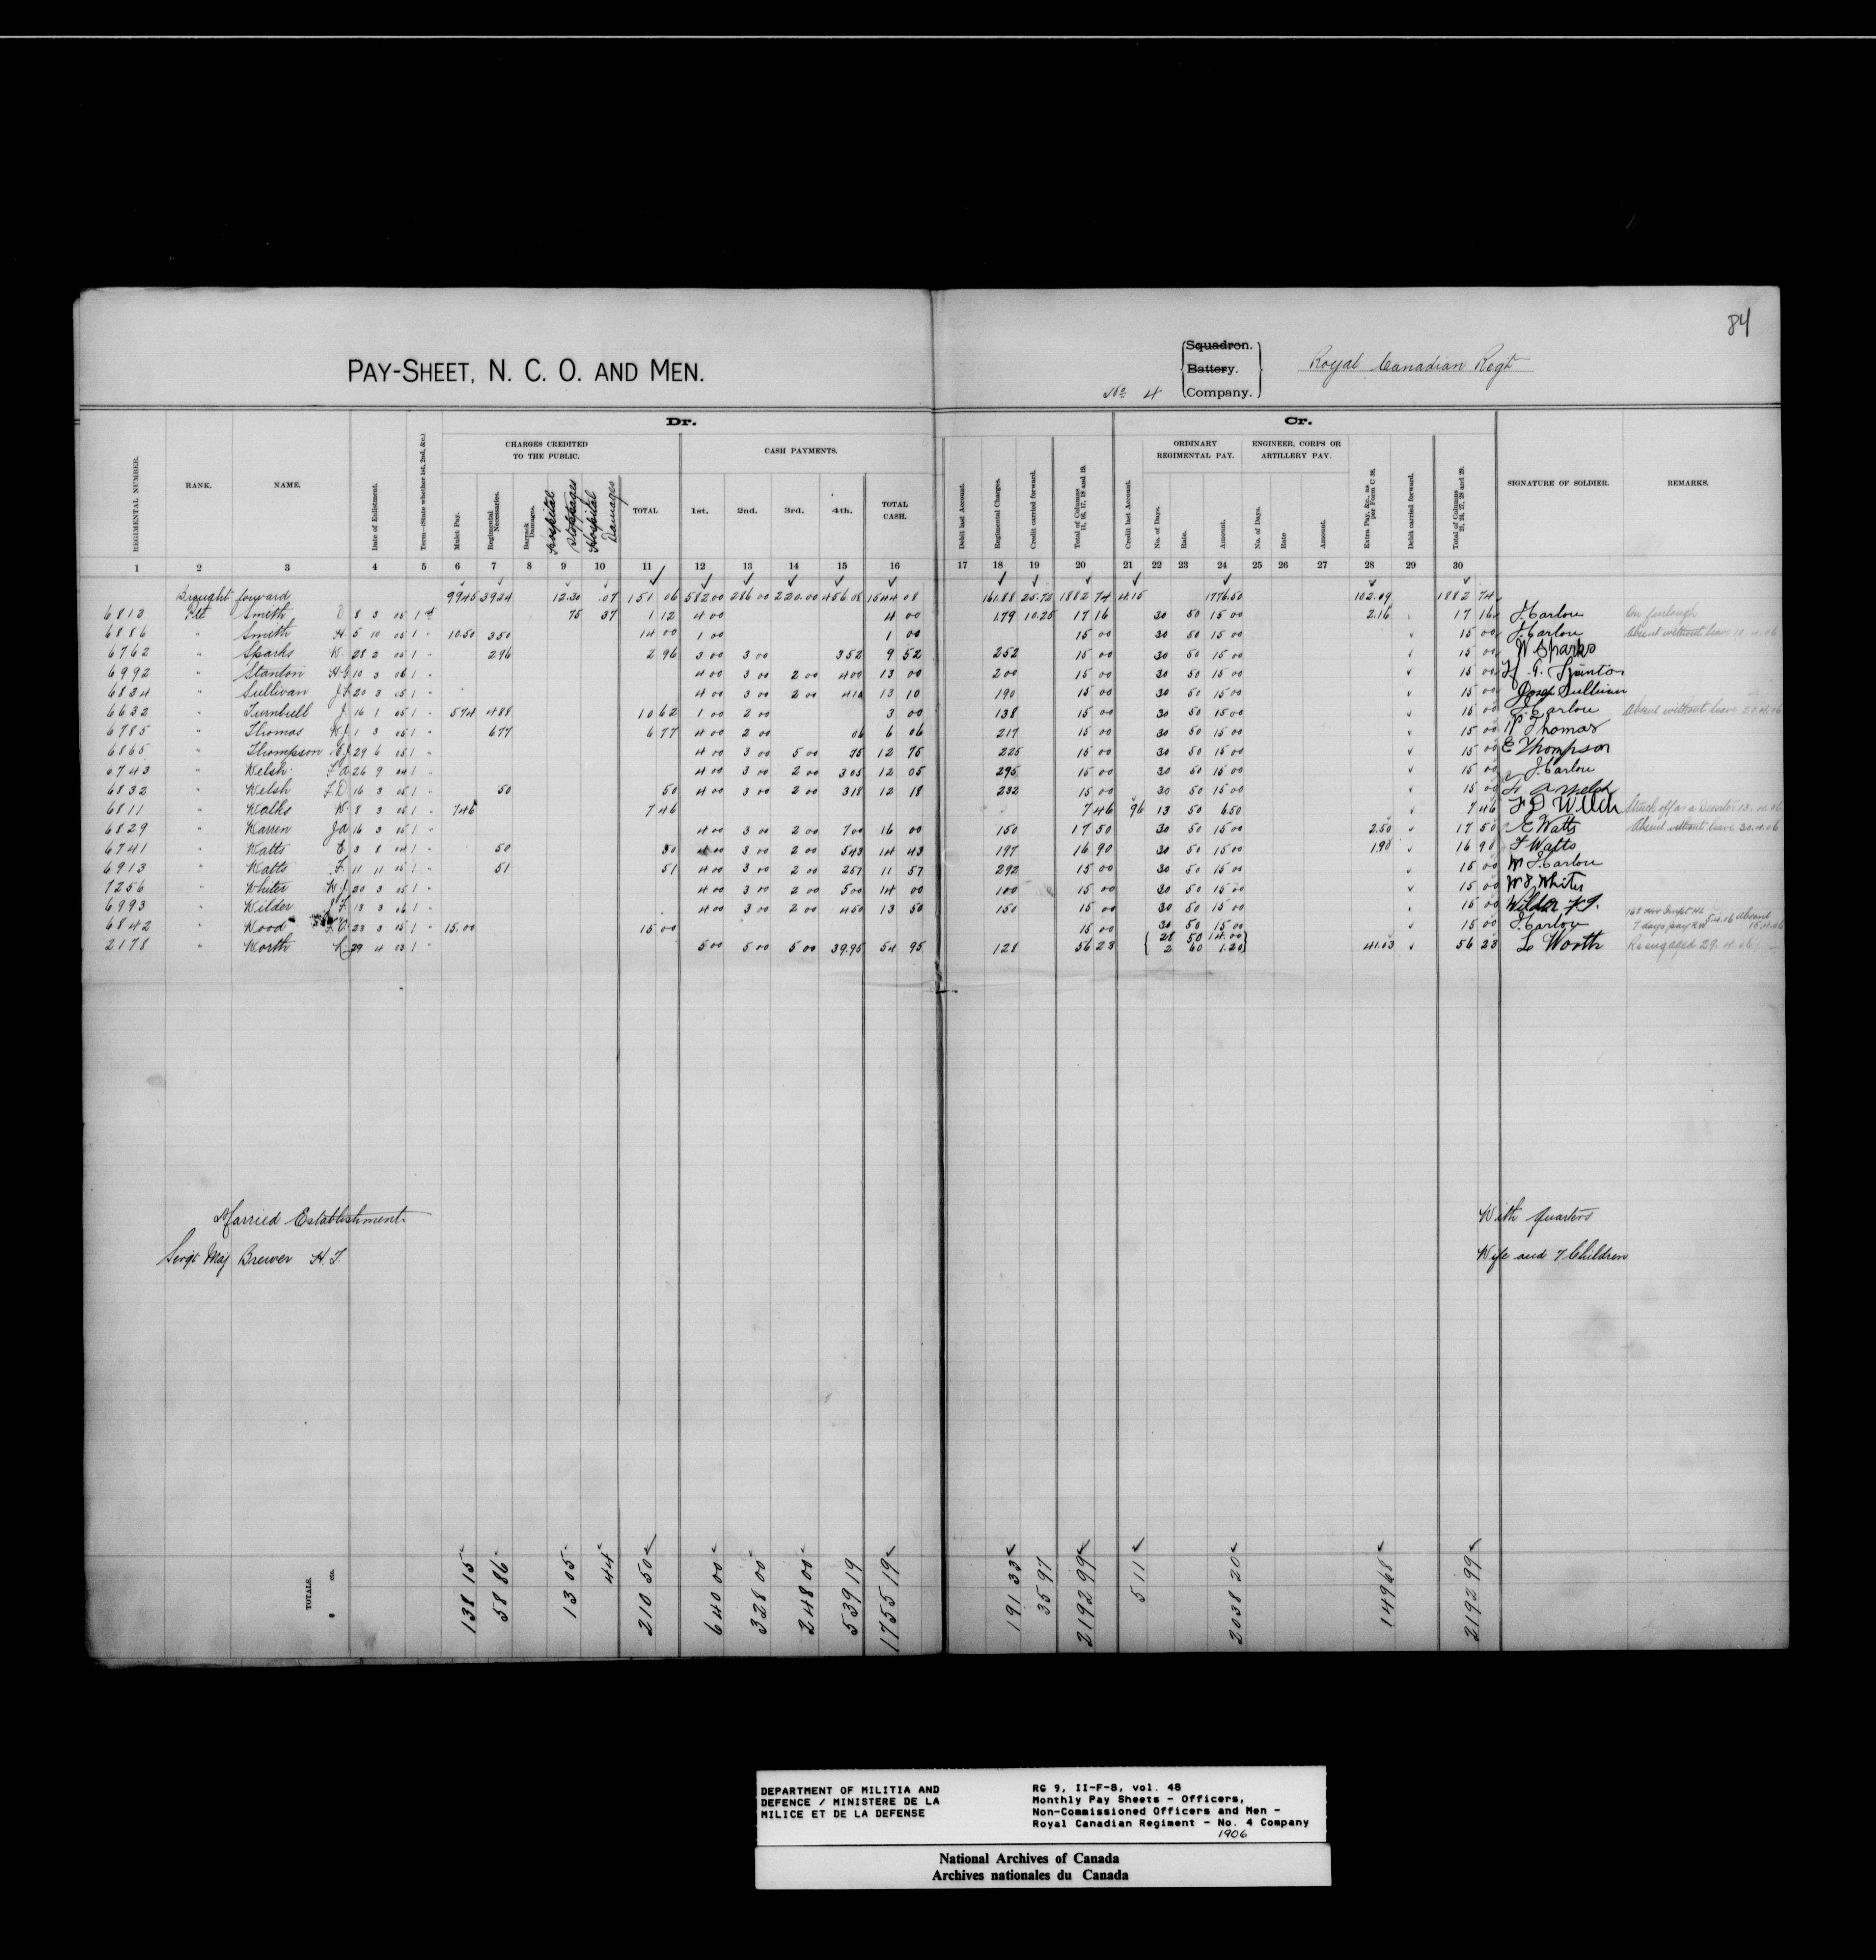 84
PAY-SHEET, N. C. O. AND MEN.
Squadron.
Battery.
No 4 Company.
Royal Canadian Regt
Dr.
Cr.
CHARGES CREDITED TO THE PUBLIC.
CASH PAYMENTS.
ORDINARY REGIMENTAL PAY.
ENGINEER, CORPS OR ARTILLERY PAY.
REGIMENTAL NUMBER. RANK. NAME. Date of Enlistment. Term—(State whether 1st, 2nd, &c.) Mulct Pay. Regimental Necessaries. Barrack Damages. Hospital Stoppages Hospital Damages TOTAL 1st. 2nd. 3rd. 4th. TOTAL CASH. Debit last Account. Regimental Charges. Credit carried forward. Total of Columns 11, 16, 17, 18 and 19. Credit last Account. No. of Days. Rate. Amount. No. of Days. Rate Amount. Extra Pay, &c., as per Form C 28. Debit carried forward. Total of Columns 21, 24, 27, 28 and 29. SIGNATURE OF SOLDIER. REMARKS.
1 2 3 4 5 6 7 8 9 10 11 12 13 14 15 16 17 18 19 20 21 22 23 24 25 26 27 28 29 30
Brought forward 99 45 39 24 12.30 .07 151 06 582 00 286 00 220.00 456 08 1544 08 161.88 25.72 1882 74 4.15 1776.50 102.09 1882 74
6813 Pte Smith D 8 3 05 1st 75 37 1 12 4 00 4 00 1 79 10.25 17 16 30 50 15 00 2.16 17 16 J. Carlou On furlough
6886 " Smith H 5 10 05 1 " 10.50 3 50 14 00 1 00 1 00 15 00 30 50 15 00 15 00 J. Carlou Absent without leave
6762 " Sparks W. 28 2 05 1 " 2 96 2 96 3 00 3 00 3 52 9 52 2 52 15 00 30 50 15 00 15 00 W Sparks
6992 " Stanton H.G 10 3 06 1 " 4 00 3 00 2 00 4 00 13 00 2 00 15 00 30 50 15 00 15 00 H. G. Stanton
6834 " Sullivan J.F. 20 3 05 1 " 4 00 3 00 2 00 4 10 13 10 1 90 15 00 30 50 15 00 15 00 Josep Sullivan
6632 " Turnbull J. 16 1 05 1 " 5 74 4 88 10 62 1 00 2 00 3 00 1 38 15 00 30 50 15 00 15 00 J. Carlou Absent without leave 20.4.06
6785 " Thomas W.J. 1 3 05 1 " 6 77 6 77 4 00 2 00 06 6 06 2 17 15 00 30 50 15 00 15 00 W Thomas
6865 " Thompson E.J. 29 6 05 1 " 4 00 3 00 5 00 75 12 75 2 25 15 00 30 50 15 00 15 00 E Thompson
6743 " Welsh F.A 26 9 04 1 " 4 00 3 00 2 00 3 05 12 05 2 95 15 00 30 50 15 00 15 00 J. Carlou
6832 " Welsh F.D 16 3 05 1 " 50 50 4 00 3 00 2 00 3 18 12 18 2 32 15 00 30 50 15 00 15 00 F A Welsh
6811 " Walks W. 8 3 05 1 " 7 46 7 46 7 46 96 13 50 6 50 7 46 F D Welch Struck off as a Deserter 13.4.06
6829 " Warren J.A 16 3 05 1 " 4 00 3 00 2 00 7 00 16 00 1 50 17 50 30 50 15 00 2.50 17 50 E Watts Absent without leave 30.4.06
6741 " Watts E 3 8 04 1 " 50 50 4 00 3 00 2 00 5 43 14 43 1 97 16 90 30 50 15 00 1.90 16 90 F Watts
6913 " Watts F. 11 11 05 1 " 51 51 4 00 3 00 2 00 2 57 11 57 2 92 15 00 30 50 15 00 15 00 J. Carlou
7256 " Whiter W.J. 20 3 05 1 " 4 00 3 00 2 00 5 00 14 00 1 00 15 00 30 50 15 00 15 00 W J Whiter
6993 " Wilder F 13 3 06 1 " 4 00 3 00 2 00 4 50 13 50 1 50 15 00 30 50 15 00 15 00 Wilder F.
6842 " Wood 23 3 05 1 " 15.00 15 00 15 00 30 50 15 00 15 00 J. Carlou 168 7 days pay 5.4.06 Absent 15.4.06
2178 " Worth L 29 4 03 1 " 5 00 5 00 5 00 39.95 54 95 1 28 56 23 28 50 14.00 2 60 1.20 41.03 56 23 L Worth Re engaged 29.4.06
Married Establishment
With Quarters
Sergt Maj Brewer H. T.
Wife and 7 Children
TOTALS. $ cts. 138 15 58 86 13 05 44 210 50 640 00 328 00 248 00 539 19 1755 19 191 33 35 97 2192 99 5 11 2038 20 149 68 2192 99
DEPARTMENT OF MILITIA AND
DEFENCE / MINISTERE DE LA
MILICE ET DE LA DEFENSE
RG 9, II-F-8, vol. 48
Monthly Pay Sheets - Officers,
Non-Commissioned Officers and Men -
Royal Canadian Regiment - No. 4 Company
1906
National Archives of Canada
Archives nationales du Canada